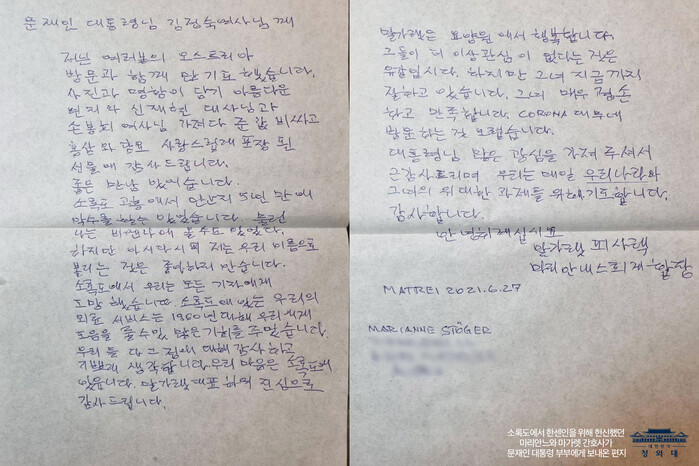 문재인 대통령님 김정숙여사님께
저는 여러분의 오스트리아
방문과 함께 만 기도 했습니다.
사진과 명함이 담기 아름다운
편지와 신재현 대사님과
손봉희 여사님 가져다 준 값 비싸고
홍삼과 담요 사랑스럽게 포장 된
선물에 감사드립니다.
좋은 만남 있었습니다.
소록도 고흥에서
박수를 할 수 있었습니다
나는 비엔나에 올 수 없었다.
하지만 아시다시피 저는 우리 이름으로
불리는 것은 좋아하지 안습니다.
소록도에서 우리는 모든 기자에게
도망 했습니다. 소록도에 있는 우리의
의료 서비스는 1960년대에 우리에게
도움을 줄 수 있 많은 기회를 주었습니다.
우리 둘 다 그 점에 대해 감사하고
기쁘게 생각합니다. 우리 마음은 소록도에
있습니다. 말가렛 대표 하여 진심으로
감사드립니다.
말가렛은 요양원에서 행복합니다.
그들이 더 이상 관심이 없다는 것은
유감입니다. 하지만 그녀 지금까지
잘하고 있습니다. 그녀 매우 겸손
하고 만족합니다. CORONA 때문에
방문하는 것 어렵습니다.
대통령님 많은 관심을 가져 주셔서
감사드리며 우리는 매일 우리나라와
그녀의 위대한 과제를 위해 기도합니다.
감사합니다.
안녕히 계십시요
말가렛 피사렉
마리안네 스퇴거
MATREI 2021.6.27
MARIANNE STÖGER
소록도에서 한센인을 위해 헌신했던
마리안느와 마가렛 간호사가
문재인 대통령 부부에게 보내온 편지
대한민국
청와대